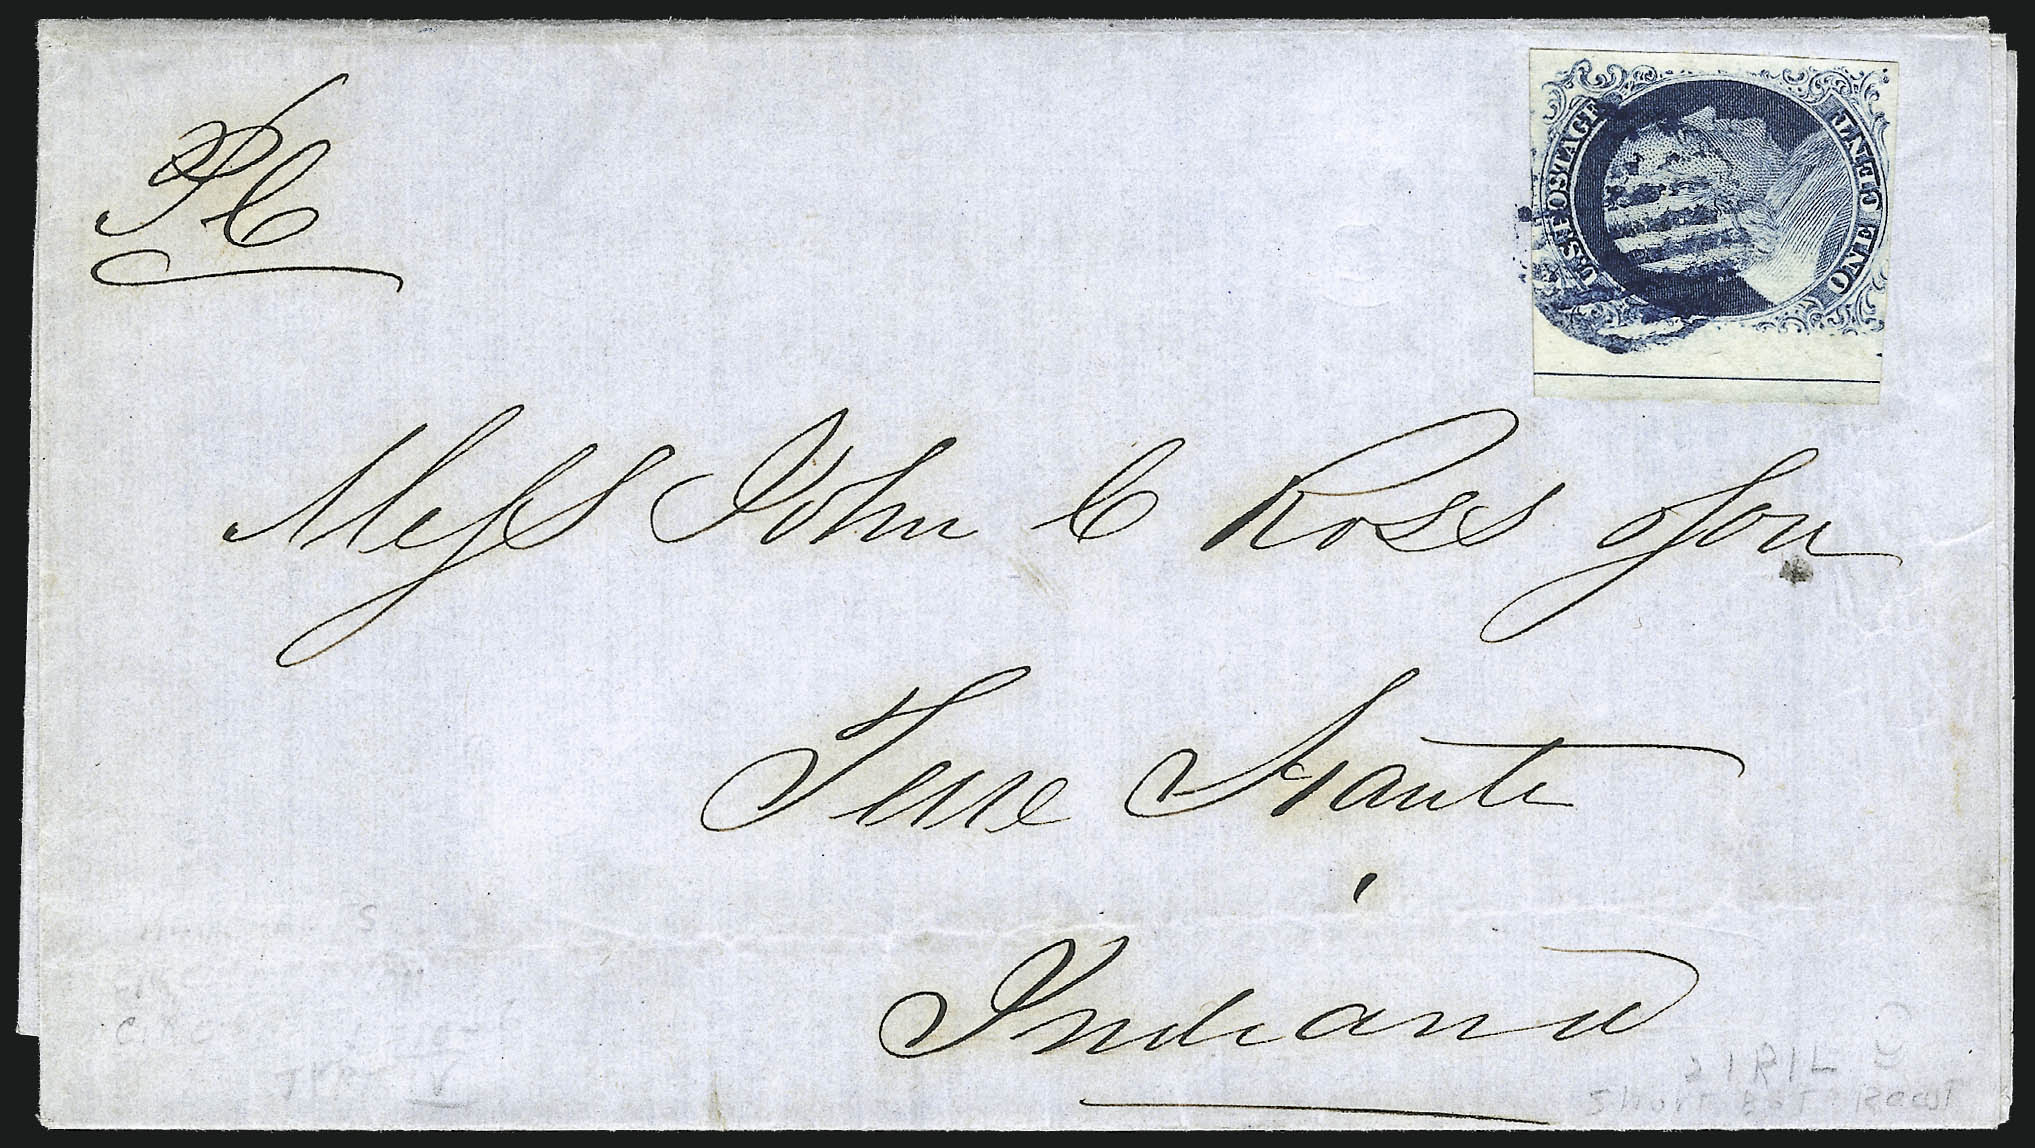 PC
U.S. POSTAGE
ONE CENT
Mess John C Ross & Son
Terre Haute
Indiana
TYPE IV
21R1L
SHORT